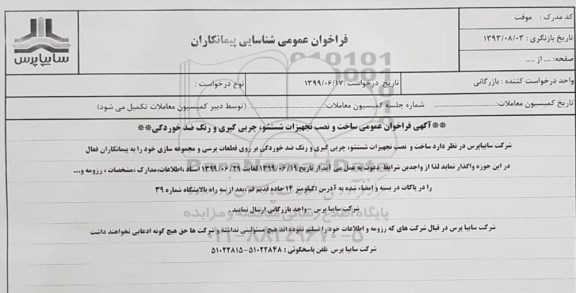 سایپاپرس
فراخوان عمومی شناسایی پیمانکاران
کد مدرک : موقت
تاریخ بازنگری : ۱۳۹۳/۰۸/۰۳
صفحه: ... از ....
واحد درخواست کننده : بازرگانی
تاریخ درخواست : ۱۳۹۹/۰۶/۱۷
نوع درخواست :
تاریخ کمیسیون معاملات: شماره جلسه کمیسیون معاملات: (توسط دبیر کمیسیون معاملات تکمیل می شود)
**آگهی فراخوان عمومی ساخت و نصب تجهیزات شستشو، چربی گیری و رنگ ضد خوردگی**
شرکت سایپاپرس در نظر دارد ساخت و نصب تجهیزات شستشو، چربی گیری و رنگ ضد خوردگی بر روی قطعات پرسی و مجموعه سازی خود را به پیمانکاران فعال
در این حوزه واگذار نماید لذا از واجدین شرایط دعوت به عمل می آید از تاریخ ۱۳۹۹/۰۶/۱۹ لغایت ۱۳۹۹/۰۶/۲۹ اسناد ،اطلاعات،مدارک ،مشخصات ، رزومه و...
را در پاکات در بسته و امضاء شده به آدرس :کیلومتر ۱۴ جاده قدیم قم ،بعد از سه راه پالایشگاه شماره ۳۹
شرکت سایپا پرس – واحد بازرگانی ارسال نمایند.
شرکت سایپا پرس در قبال شرکت های که رزومه و اطلاعات خود را تسلیم ننموده اند هیچ مسئولیتی نداشته و شرکت ها حق هیچ گونه ادعایی نخواهند داشت
شرکت سایپا پرس تلفن پاسخگوئی : ۵۱۰۲۲۸۴۸-۵۱۰۲۲۸۱۵
ParsNamadData
پایگاه اطلاع رسانی مناقصه و مزایده
۰۲۱-۸۸۳۴۹۶۷۰-۵